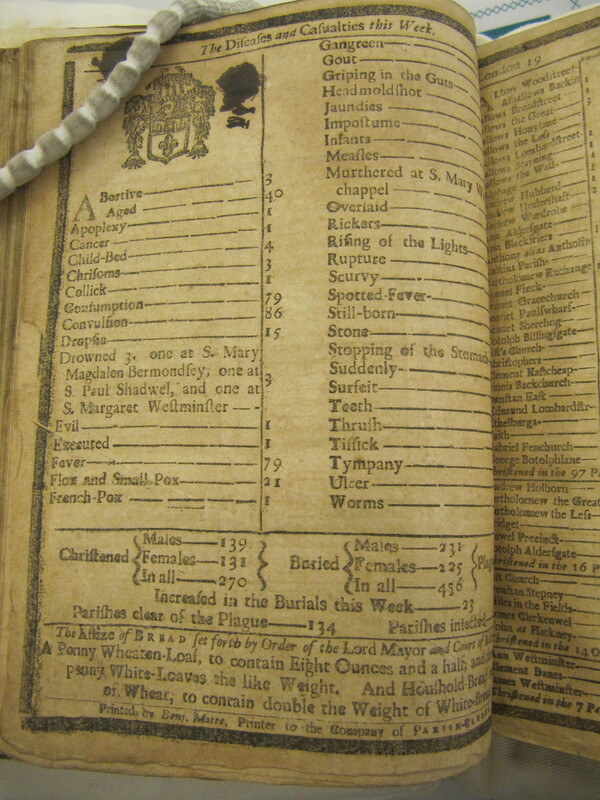 The Diseases and Casualties this Week.
Abortive 3
Aged 40
Apoplexy 1
Cancer 1
Child-Bed 4
Chrisoms 3
Collick 1
Consumption 79
Convulsion 86
Dropsie 15
Drowned 3, one at S. Mary
Magdalen Bermondsey, one at
S. Paul Shadwel, and one at
S. Margaret Westminster 3
Evil 1
Executed 1
Fever 79
Flox and Small-Pox 21
French-Pox 1
Gangreen
Gout
Griping in the Guts
Headmoldshot
Jaundies
Impostume
Infants
Measles
Murthered at S. Mary
chappel
Overlaid
Rickets
Rising of the Lights
Rupture
Scurvy
Spotted-Fever
Still-born
Stone
Stopping of the Stomach
Suddenly
Surfeit
Teeth
Thrush
Tissick
Tympany
Ulcer
Worms
Christened Males 139
Females 131
In all 270
Buried Males 231
Females 225
In all 456
Increased in the Burials this Week 23
Parishes clear of the Plague 134 Parishes
The Assize of BREAD set forth by Order of the Lord Mayor and Court of
A Penny Wheaten-Loaf, to contain Eight Ounces and a half, and
peny White-Loaves the like Weight. And Houshold-Bread
of Wheat, to contain double the Weight of White-
Printed by Benj. Motte, Printer to the Company of PARISH-
London 19
Woodstreet
Barkin
Breadstreet
the Great
Honylane
the Less
Lombardstreet
Stayning
the Wall
Hubbard
Undershaft
Wardrobe
Aldersgate
Blackfriers
alias
Parish
Exchange
Finck
Gracechurch
Paulswharf
Sherehog
Billingsgate
Church
Eastcheap
Backchurch
East
Lombardstr
Fenchurch
Botolphlane
Christened in the 97
Andrew Holborn
Bartholomew the Great
Bartholomew the Less
Bridget
Precinct
Botolph Aldersgate
Christened in the 16
Church
Stepney
in the Fields
Clerkenwel
at Hackney
Christened in the 14
Westminster
Clement Danes
James Westminster
Christened in the 7